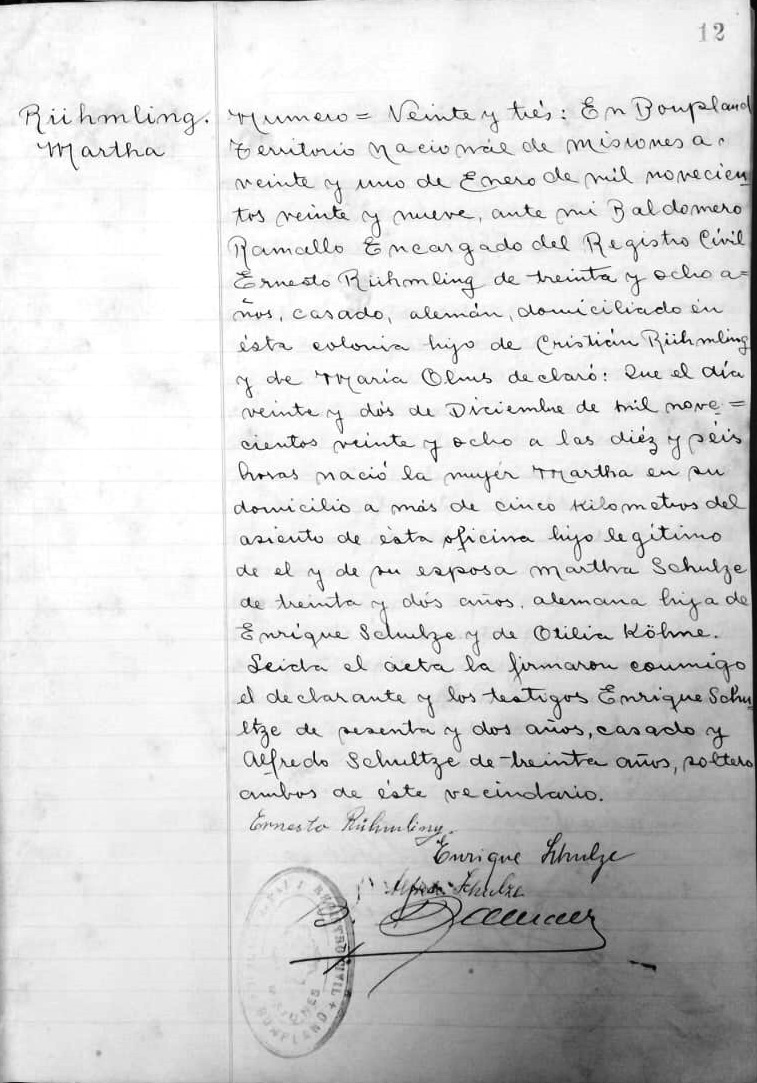 12
Rühmling.
Martha
Numero = Veinte y trés: En Bonpland
Territorio nacional de misiones a.
veinte y uno de Enero de mil novecien
tos veinte y nueve, ante mi Baldomero
Ramallo Encargado del Registro Civil
Ernesto Rühmling de treinta y ocho a=
ños, casado, alemán, domiciliado en
ésta colonia hijo de Cristián Rühmling
y de María Olms declaró: Que el día
veinte y dós de Diciembre de mil nove=
cientos veinte y ocho a las diéz y séis
horas nació la mujér Martha en su
domicilio a más de cinco kilometros del
asiento de ésta oficina hijo legítimo
de el y de su esposa Martha Schulze
de treinta y dós años, alemana hija de
Enríque Schulze y de Otilia Köhne.
Leida el acta la firmaron conmigo
el declarante y los testigos Enrique Schu
ltze de sesenta y dos años, casado y
Alfredo Schultze de treinta años, soltero
ambos de éste vecindario.
Ernesto Rühmling.
Enrique Schulze
Alfredo Schulze
B.
REGISTRO CIVIL
MISIONES
BONPLAND